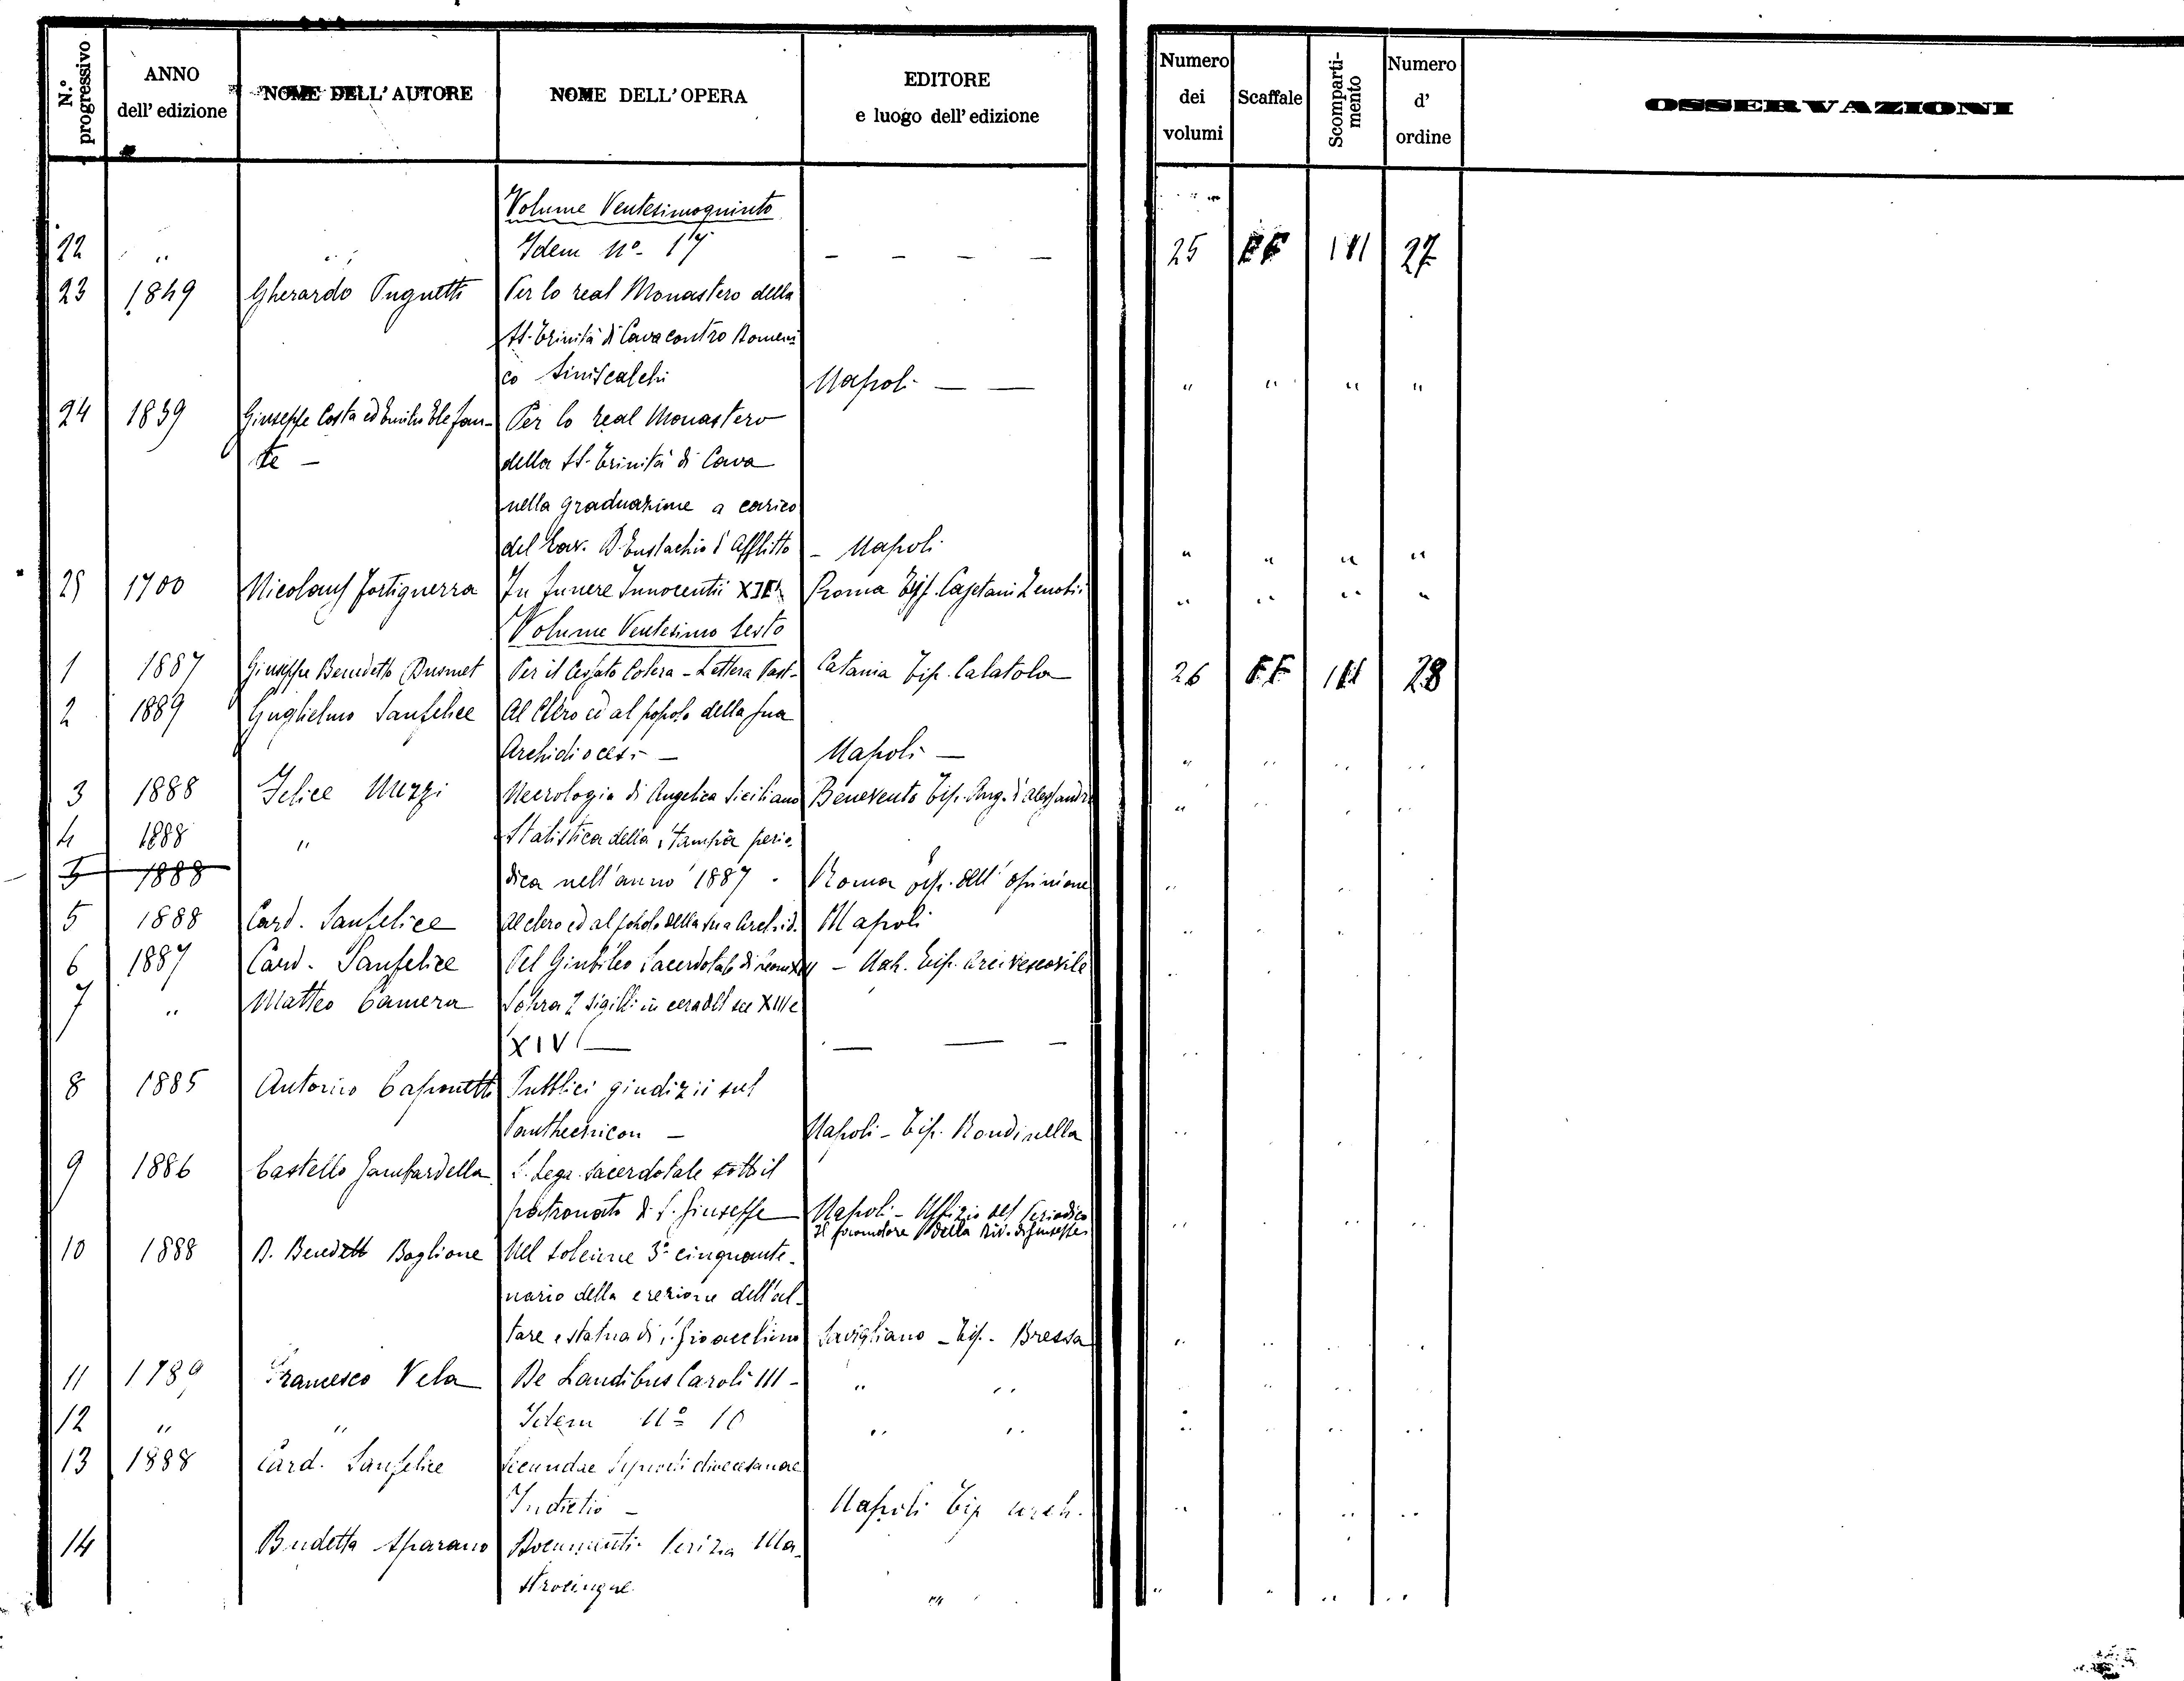 N.° progressivo
ANNO
dell' edizione
NOME DELL' AUTORE
NOME DELL' OPERA
EDITORE
e luogo dell' edizione
Numero
dei
volumi
Scaffale
Scomparti-
mento
Numero
d'
ordine
OSSERVAZIONI
Volume Ventesimoquinto
22 " " Idem n.o 17 — — — — 25 EE III 27
23 1849 Gherardo Pugnetti Per lo real Monastero della
SS. Trinità di Cava contro Domeni
co Siniscalchi Napoli — — " " " "
24 1839 Giuseppe Costa ed Emilio Elefan- Per lo real Monastero
te — della SS. Trinità di Cava
nella graduazione a carico
del Cav. D. Eustachio d'Afflitto - Napoli " " " "
25 1700 Nicolaus Fortiguerra In funere Innocentii XII Roma Typ. Cajetani Zenobii " " " "
Volume Ventesimo Sesto
1 1887 Giuseppe Benedetto Dusmet Per il cessato Colera - Lettera Past- Catania Tip. Calatola 26 EE III 28
2 1889 Guglielmo Sanfelice Al Clero ed al popolo della sua
Archidiocesi — Napoli — " " " "
3 1888 Felice Muzzi Necrologia di Angelica Siciliano Benevento Tip. Ang. d'Alessandro " " " "
4 1888 " Statistica della stampa perio-
5 1888 dica nell'anno 1887 - Roma Tip. dell'opinione " " " "
5 1888 Card. Sanfelice Al clero ed al popolo della sua Archid. Napoli " " " "
6 1887 Card. Sanfelice Pel Giubileo Sacerdotale di Leone XIII - Nap. Tip. Arcivescovile " " " "
7 " Matteo Camera Sopra 2 sigilli in cera del sec XIII e
XIV — — — — " " " "
8 1885 Antonio Caponetti Pubblici giudizii sul
Panthecnicon — Napoli - Tip. Rondinella " " " "
9 1886 Castello Gambardella L. Lega sacerdotale sotto il
patronato di S. Giuseppe Napoli - Uffizio del Periodico " " " "
Il promotore della div. di Giuseppe
10 1888 D. Benedetto Baglione Nel solenne 3.o cinquante-
nario della erezione dell'al-
tare e statua di S. Gioacchino Savigliano - Tip. Bressa " " " "
11 1789 Francesco Vela De Laudibus Caroli III - " " " " " "
12 " " Idem N.o 10 " " " " " "
13 1888 Card. Sanfelice Secundae Synodi dioecesanae
Indictio — Napoli Tip arch. " " " "
14 Budetta Sparano Documenti Perizia Ma-
strocinque. " " " " "